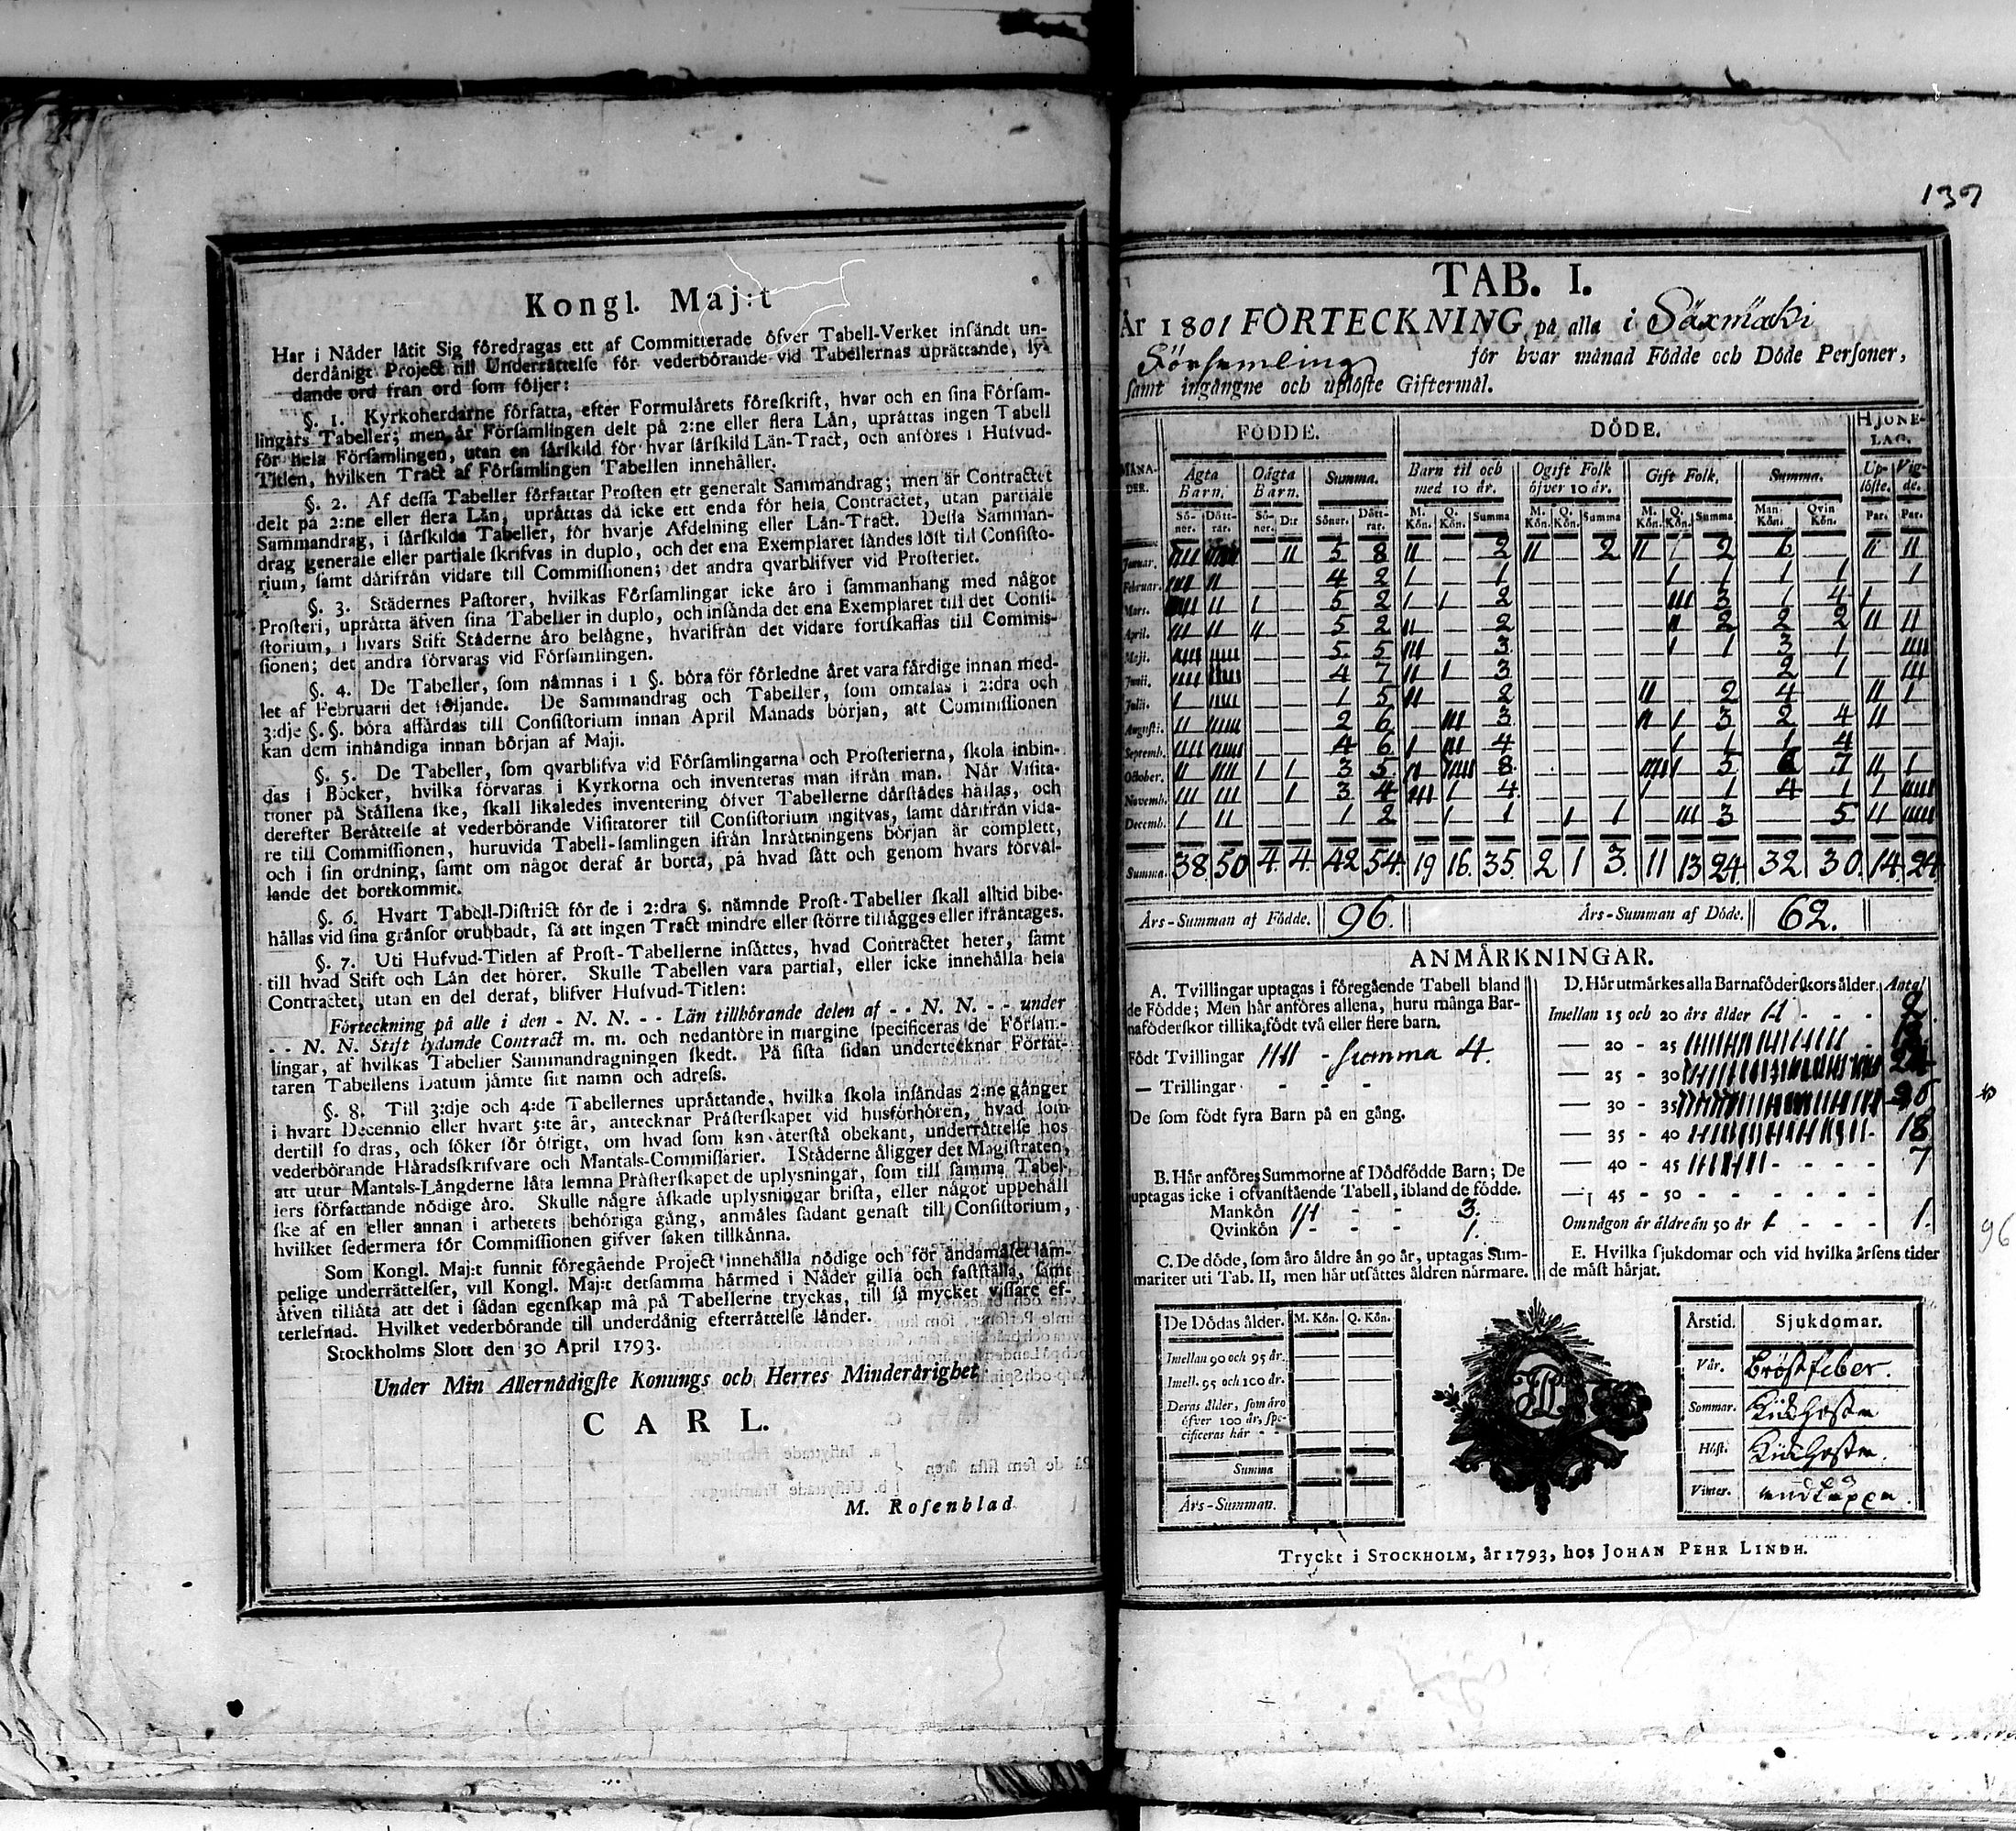 Kongl. Maj:t
Har i Nåder låtit Sig föredragas ett af Committerade öfver Tabell-Verket insändt un-
derdånigt Project till Underrättelse för vederbörande vid Tabellernas uprättande, ly-
dande ord från ord som följer:
§. 1. Kyrkoherdarne författa, efter Formulärets föreskrift, hvar och en sina Försam-
lingars Tabeller; men är Församlingen delt på 2:ne eller flera Län, uprättas ingen Tabell
för hela Församlingen, utan en särskild för hvar särskild Län-Tract, och anföres i Hufvud-
Titlen, hvilken Tract af Församlingen Tabellen innehåller.
§. 2. Af dessa Tabeller författar Prosten ett generalt Sammandrag; men är Contractet
delt på 2:ne eller flera Län, uprättas då icke ett enda för hela Contractet, utan partiale
Sammandrag, i särskilda Tabeller, för hvarje Afdelning eller Län-Tract. Dessa Samman-
drag generale eller partiale skrifvas in duplo, och det ena Exemplaret sändes löst till Consisto-
rium, samt därifrån vidare till Commissionen; det andra qvarblifver vid Prosteriet.
§. 3. Städernes Pastorer, hvilkas Församlingar icke äro i sammanhang med något
Prosteri, uprätta äfven sina Tabeller in duplo, och insända det ena Exemplaret till det Consi-
storium, i hvars Stift Städerne äro belägne, hvarifrån det vidare fortskaffas till Commis-
sionen; det andra förvaras vid Församlingen.
§. 4. De Tabeller, som nämnas i 1 §. böra för förledne året vara färdige innan med-
let af Februarii det följande. De Sammandrag och Tabeller, som omtalas i 2:dra och
3:dje §. §. böra affärdas till Consistorium innan April Månads början, att Commissionen
kan dem inhändiga innan början af Maji.
§. 5. De Tabeller, som qvarblifva vid Församlingarna och Prosterierna, skola inbin-
das i Böcker, hvilka förvaras i Kyrkorna och inventeras man ifrån man. När Visita-
tioner på Ställena ske, skall likaledes inventering öfver Tabellerne därstädes hållas, och
derefter Berättelse af vederbörande Visitatorer till Consistorium ingifvas, samt därifrån vida-
re till Commissionen, huruvida Tabell-samlingen ifrån Inrättningens början är complett,
och i sin ordning, samt om något deraf är borta, på hvad sätt och genom hvars förvål-
lande det bortkommit.
§. 6. Hvart Tabell-District för de i 2:dra §. nämnde Prost-Tabeller skall alltid bibe-
hållas vid sina gränsor orubbadt, så att ingen Tract mindre eller större tillägges eller ifråntages.
§. 7. Uti Hufvud-Titlen af Prost-Tabellerne insättes, hvad Contractet heter, samt
till hvad Stift och Län det hörer. Skulle Tabellen vara partial, eller icke innehålla hela
Contractet, utan en del deraf, blifver Hufvud-Titlen:
Förteckning på alle i den - N. N. - - Län tillhörande delen af - - N. N. - - under
- - N. N. Stift lydande Contract m. m. och nedanföre in margine specificeras de Försam-
lingar, af hvilkas Tabeller Sammandragningen skedt. På sista sidan undertecknar Förfat-
taren Tabellens Datum jämte sitt namn och adress.
§. 8. Till 3:dje och 4:de Tabellernes uprättande, hvilka skola insändas 2:ne gånger
i hvart Decennio eller hvart 5:te år, antecknar Prästerskapet vid husförhören, hvad som
dertill fodras, och söker för öfrigt, om hvad som kan återstå obekant, underrättelse hos
vederbörande Häradsskrifvare och Mantals-Commissarier. I Städerne åligger det Magistraten,
att utur Mantals-Längderne låta lemna Prästerskapet de uplysningar, som till samma Tabel-
lers författande nödige äro. Skulle någre äskade uplysningar brista, eller något uppehåll
ske af en eller annan i arbetets behöriga gång, anmäles sådant genast till Consistorium,
hvilket sedermera för Commissionen gifver saken tillkänna.
Som Kongl. Maj:t funnit föregående Project innehålla nödige och för ändamålet läm-
pelige underrättelser, vill Kongl. Maj:t detsamma härmed i Nåder gilla och fastställa, samt
äfven tillåta att det i sådan egenskap må på Tabellerne tryckas, till så mycket vissare ef-
terlefnad. Hvilket vederbörande till underdånig efterrättelse länder.
Stockholms Slott den 30 April 1793.
Under Min Allernådigste Konungs och Herres Minderårighet
CARL.
M. Rosenblad
139
TAB. I.
År 1801 FÖRTECKNING på alla i Säxmäki
Församling för hvar månad Födde och Döde Personer,
samt ingångne och uplöste Giftermål.
FÖDDE. DÖDE. HJONE-
LAG.
MÅNA-
DER. Ägta
Barn. Oägta
Barn. Summa. Barn til och
med 10 år. Ogift Folk
öfver 10 år. Gift Folk. Summa. Up-
löste. Vig-
de.
Sö-
ner. Dött-
rar. Sö-
ner. Dtr Söner. Dött-
rar. M.
Kön. Q.
Kön. Summa M.
Kön. Q.
Kön. Summa M.
Kön. Q.
Kön. Summa Man
Kön. Qvin
Kön. Par. Par.
Januar. 5 8 2 2 2 6
Februar. 4 2 1 1 1 1
Mars. 5 2 2 3 1 4
April. 5 2 2 2 2 2
Maji. 5 5 3 1 3 1
Junii. 4 7 3 2 1
Julii. 1 5 2 2 4
Augusti. 2 6 3 3 2 4
Septemb. 4 6 4 1 1 4
October. 3 5 8 5 6 7
Novemb. 3 4 4 1 4 1
Decemb. 1 2 1 1 3 5
Summa. 38. 50 4. 4. 42 54. 19 16. 35. 2 1 3. 11 13 24. 32 30. 14. 24.
Års-Summan af Födde. 96. Års-Summan af Döde. 62.
ANMÄRKNINGAR.
A. Tvillingar uptagas i föregående Tabell bland
de Födde; Men här anföres allena, huru många Bar-
naföderskor tillika födt två eller flere barn.
Födt Tvillingar IIII - Summa 4.
— Trillingar - - -
De som födt fyra Barn på en gång.
B. Här anföres Summorne af Dödfödde Barn; De
uptagas icke i ofvanstående Tabell, ibland de födde.
Mankön III - - 3.
Qvinkön I - - 1.
C. De döde, som äro äldre än 90 år, uptagas Sum-
mariter uti Tab. II, men här utsättes åldren närmare.
D. Här utmärkes alla Barnaföderskors ålder. Antal
Imellan 15 och 20 års ålder II - - - 2
— 20 - 25
— 25 - 30
— 30 - 35
— 35 - 40 18
— 40 - 45 7
— 45 - 50
Om någon är äldre än 50 år 1 - - - 1.
96
E. Hvilka sjukdomar och vid hvilka årsens tider
de mäst härjat.
De Dödas ålder. M. Kön. Q. Kön.
Imellan 90 och 95 år.
Imell. 95 och 100 år.
Deras ålder, som äro
öfver 100 år, spe-
cificeras här - -
Summa
Års-Summan.
Årstid. Sjukdomar.
Vår. Bröstfeber.
Sommar. Kikhosta
Höst. Kikhosta.
Vinter.
Tryckt i STOCKHOLM, år 1793, hos JOHAN PEHR LINDH.